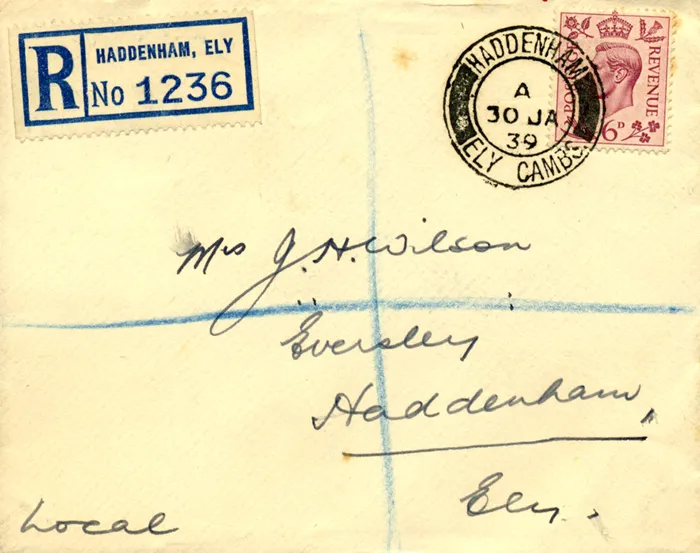 R HADDENHAM, ELY
No 1236
HADDENHAM
A
30 JA
39
ELY CAMBS.
REVENUE
6D
Mrs J.H. Wilson
Eversley
Haddenham,
Ely.
Local